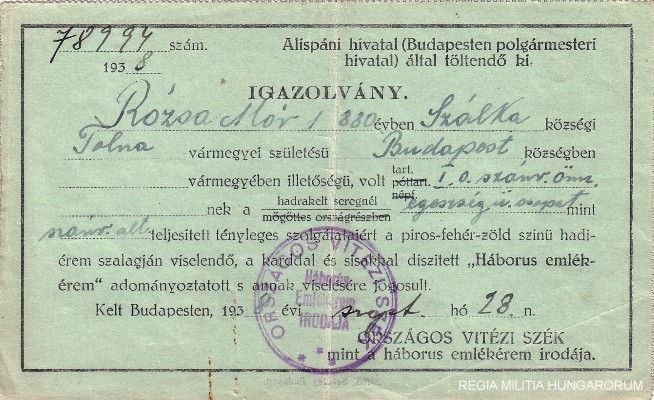 78994 szám.
1938
Alispáni hivatal (Budapesten polgármesteri
hivatal) által töltendő ki.
IGAZOLVÁNY.
Rózsa Mór 1880 évben Szálka községi
Tolna vármegyei születésű Budapest községben
vármegyében illetőségű, volt tart. póttart. népf. I. o. szánv. önk.
nek a hadrakelt seregnél mögöttes országrészben egészségü. csapat mint
szánv. alt. teljesített tényleges szolgálataiért a piros-fehér-zöld szinű hadi-
érem szalagján viselendő, a karddal és sisakkal díszített „Háborus emlék-
érem” adományoztatott s annak viselésére jogosult.
Kelt Budapesten, 1938 évi szept. hó 28. n.
ORSZÁGOS VITÉZI SZÉK
mint a háborus emlékérem irodája.
ORSZÁGOS VITÉZI SZÉK
Háborús
Emlékérem
IRODÁJA
REGIA MILITIA HUNGARORUM